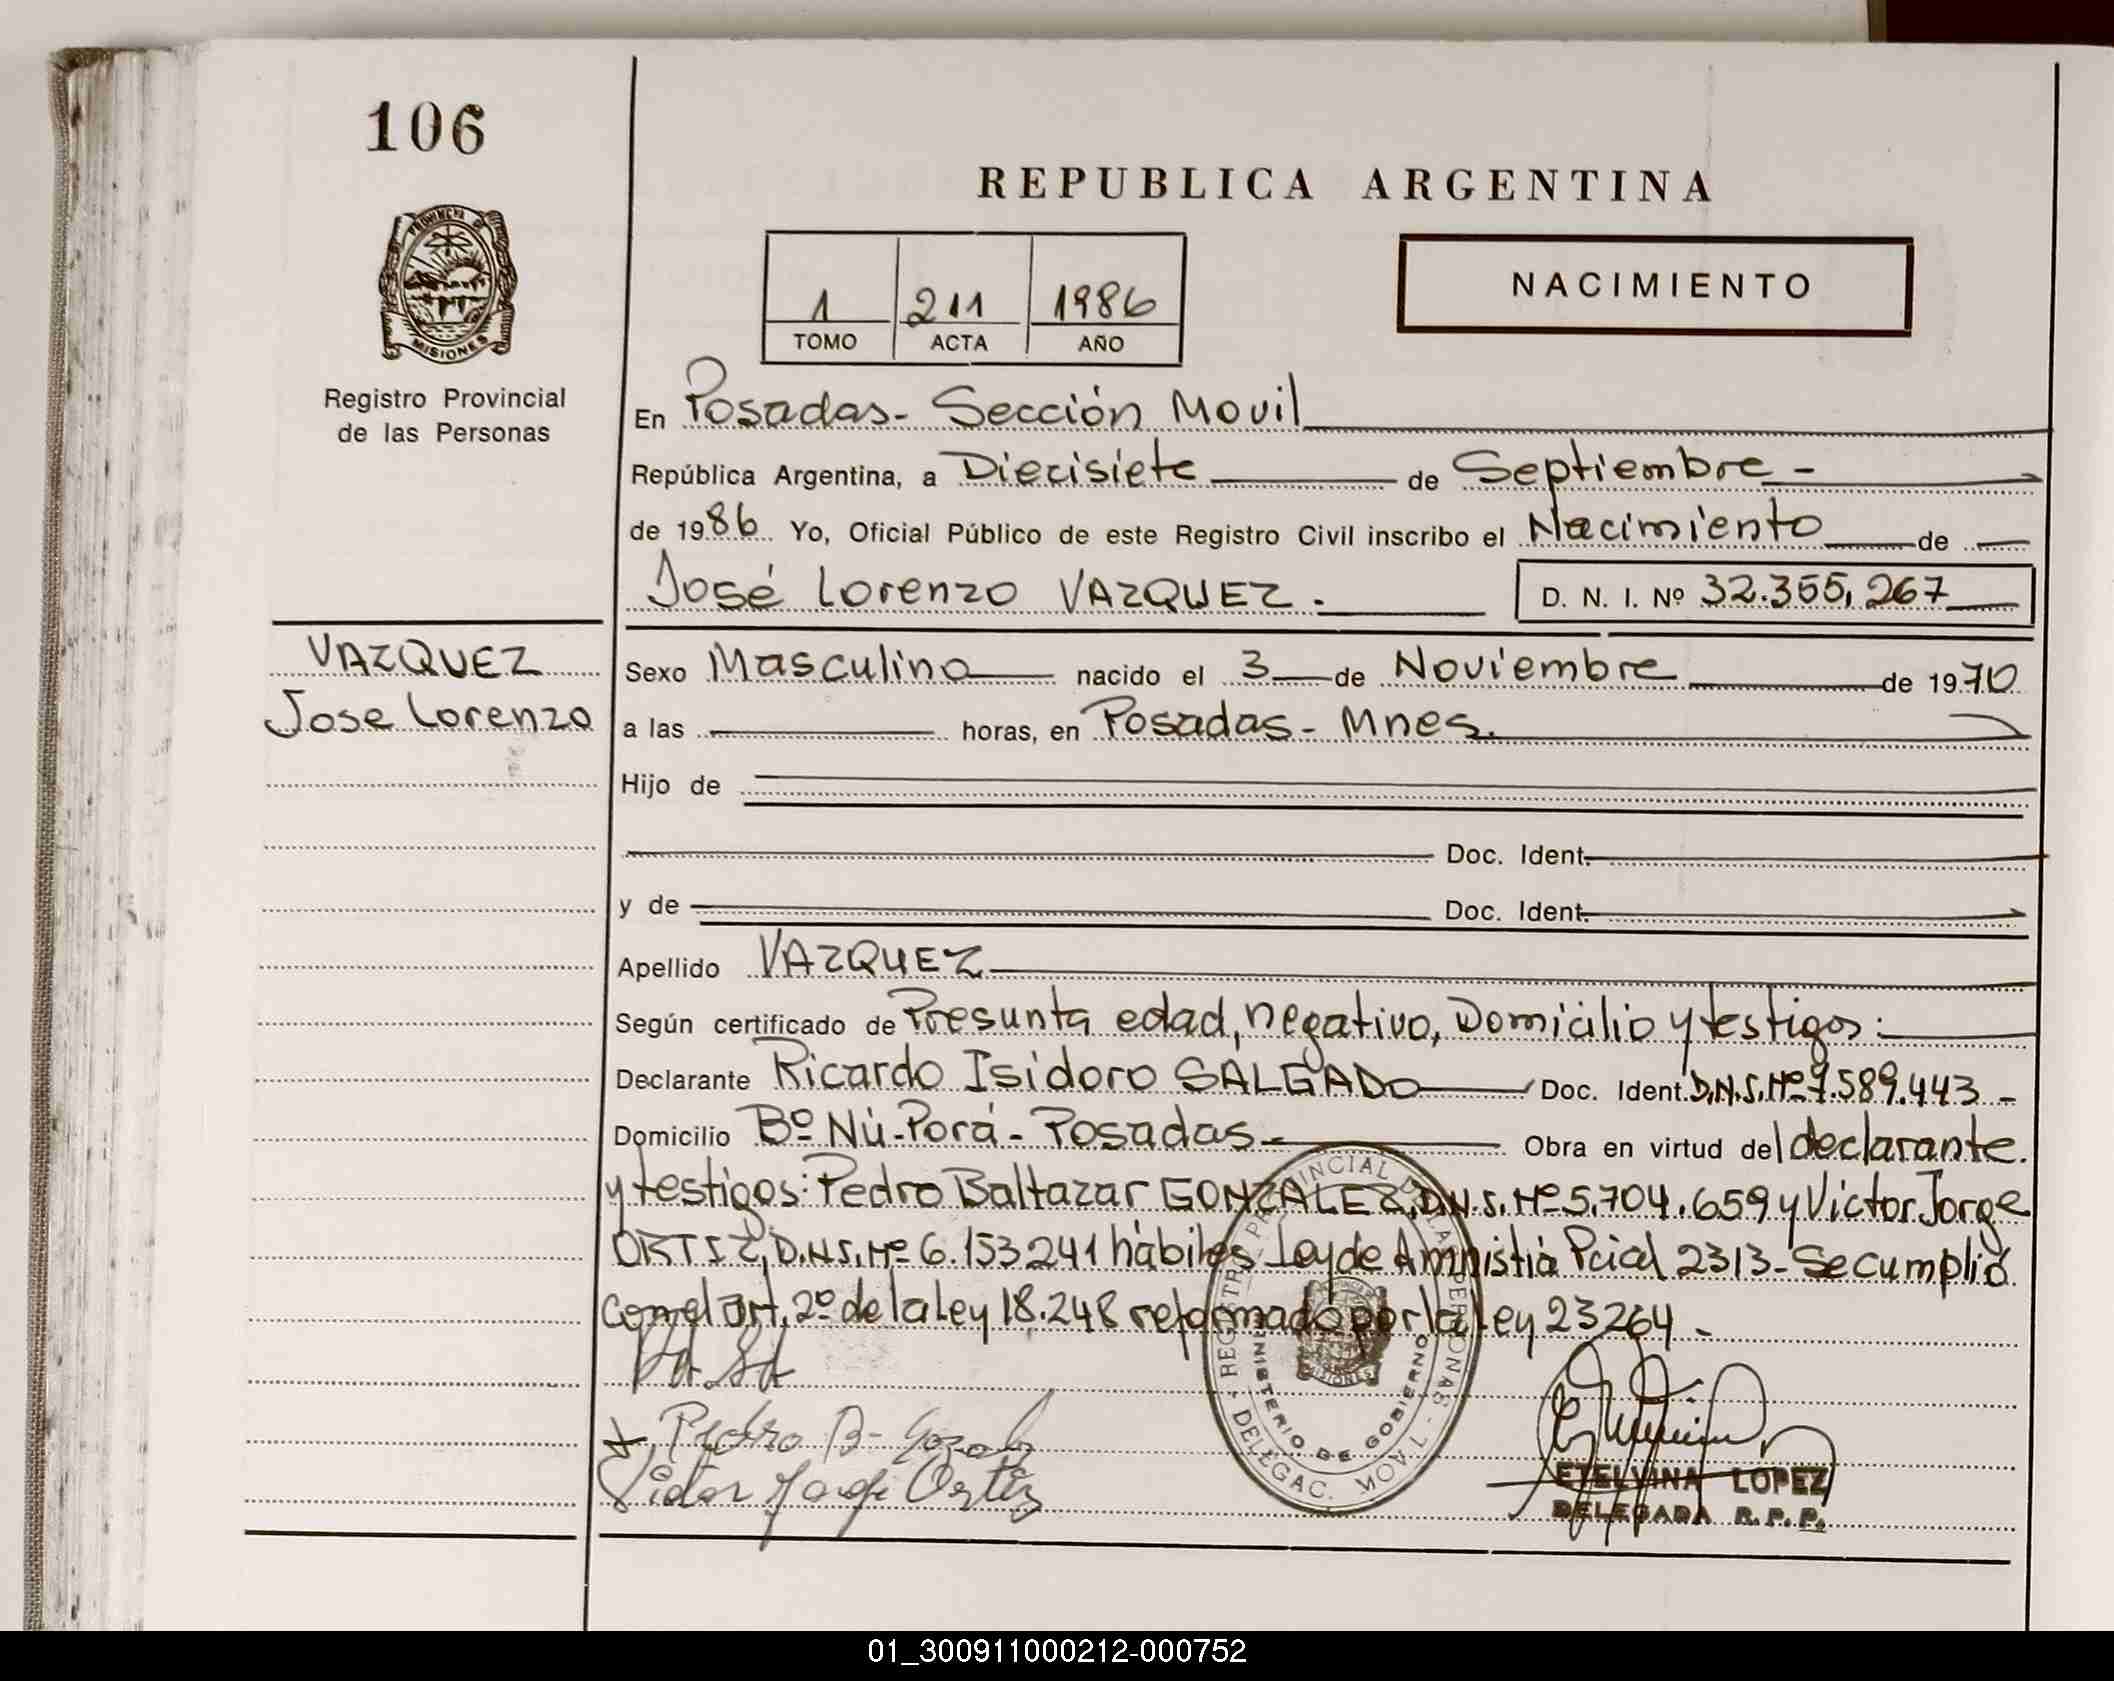 106
REPUBLICA ARGENTINA
PROVINCIA DE
MISIONES
Registro Provincial
de las Personas
1 211 1986
TOMO ACTA AÑO
NACIMIENTO
En Posadas - Sección Movil
República Argentina, a Diecisiete de Septiembre -
de 1986 Yo, Oficial Público de este Registro Civil inscribo el Nacimiento de
José Lorenzo VAZQUEZ. D. N. I. Nº 32.355,267
VAZQUEZ
Jose Lorenzo
Sexo Masculino nacido el 3 de Noviembre de 1970
a las horas, en Posadas - Mnes.
Hijo de
Doc. Ident.
y de Doc. Ident.
Apellido VAZQUEZ
Según certificado de Presunta edad, negativo, Domicilio y testigos:
Declarante Ricardo Isidoro SALGADO Doc. Ident. D.N.I. Nº 7.589.443 -
Domicilio Bº Nú-Porá - Posadas - Obra en virtud del declarante.
y testigos: Pedro Baltazar GONZALEZ, D.N.I. Nº 5.704.659 y Victor Jorge
ORTIZ, D.N.I. Nº 6.153241 hábiles. Ley de Amnistiá Pcial 2313 - Se cumplió
con el art. 2º de la ley 18.248 reformado por la ley 23264 -
Pedro B. Gonzalez
Victor Jorge Ortiz
REGISTRO PROVINCIAL DE LAS PERSONAS - DELEGAC. MOVIL -
MINISTERIO DE GOBIERNO
MISIONES
ETELVINA LOPEZ
DELEGADA R.P.P.
01_300911000212-000752